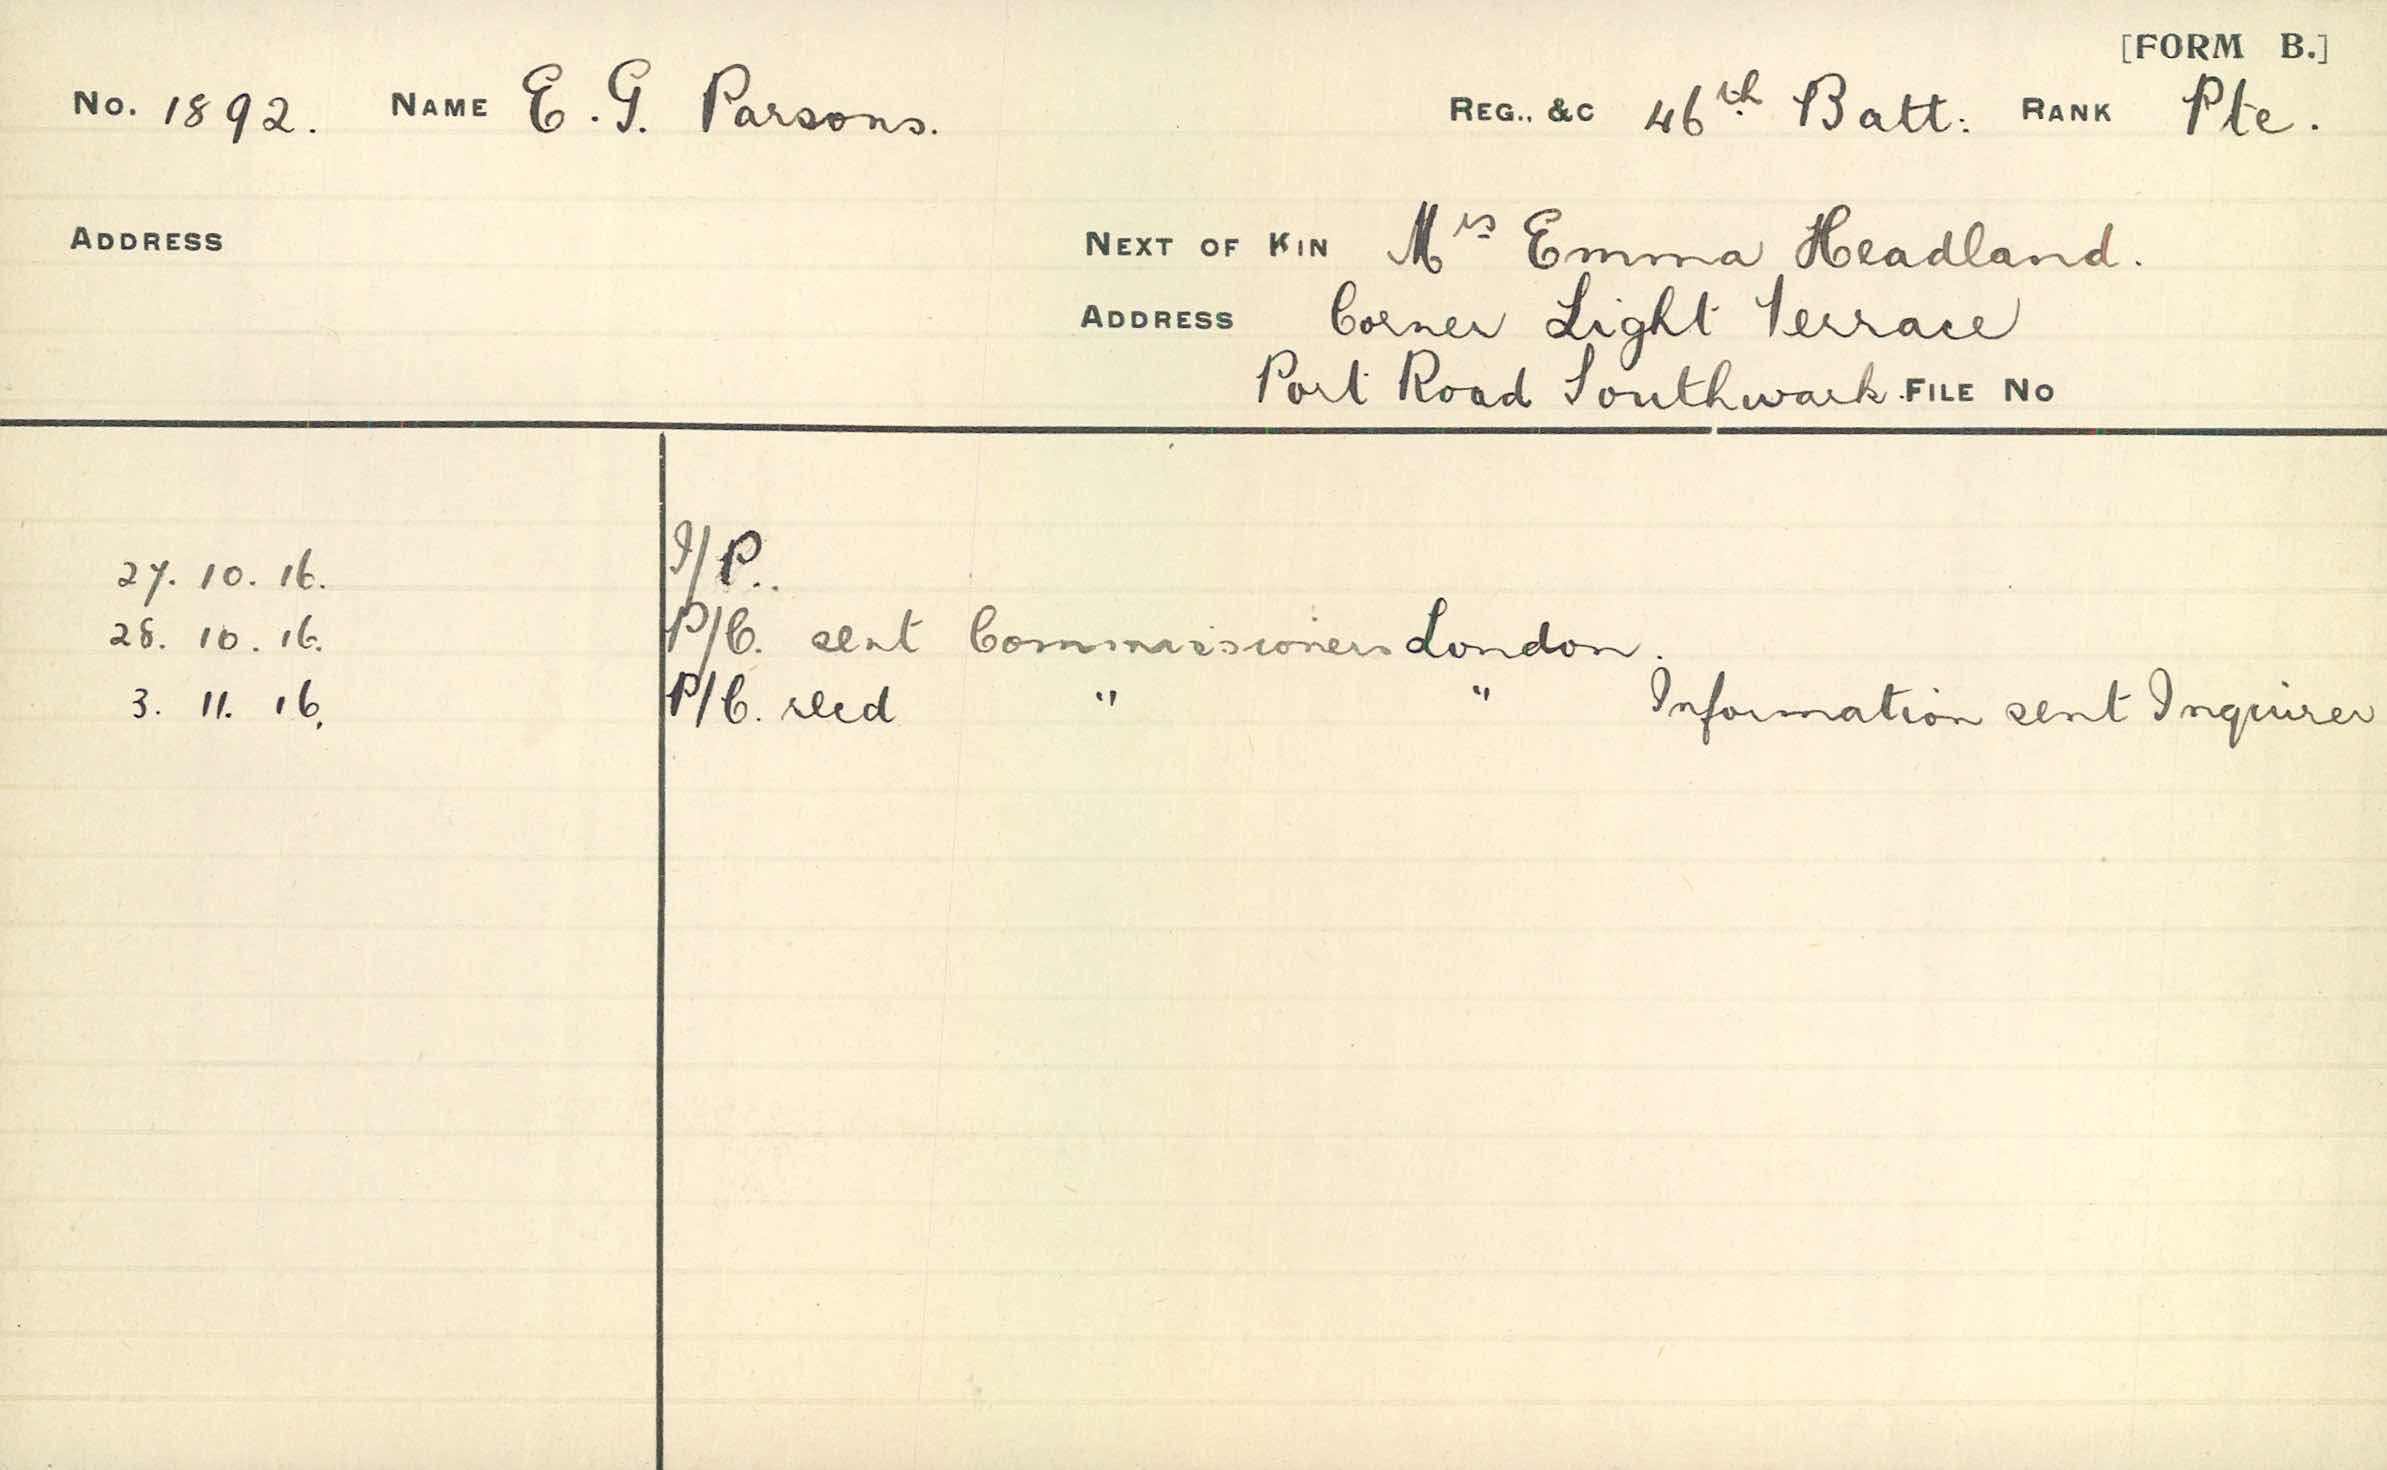 [FORM B.]
No. 1892. NAME E. G. Parsons. REG., &C 46th Batt: RANK Pte.
ADDRESS NEXT OF KIN Mrs Emma Headland.
ADDRESS Corner Light Terrace
Port Road Southwark. FILE No
27. 10. 16. I/P..
28. 10. 16. P/C. sent Commissioners London.
3. 11. 16. P/C. recd " " Information sent Inquirer